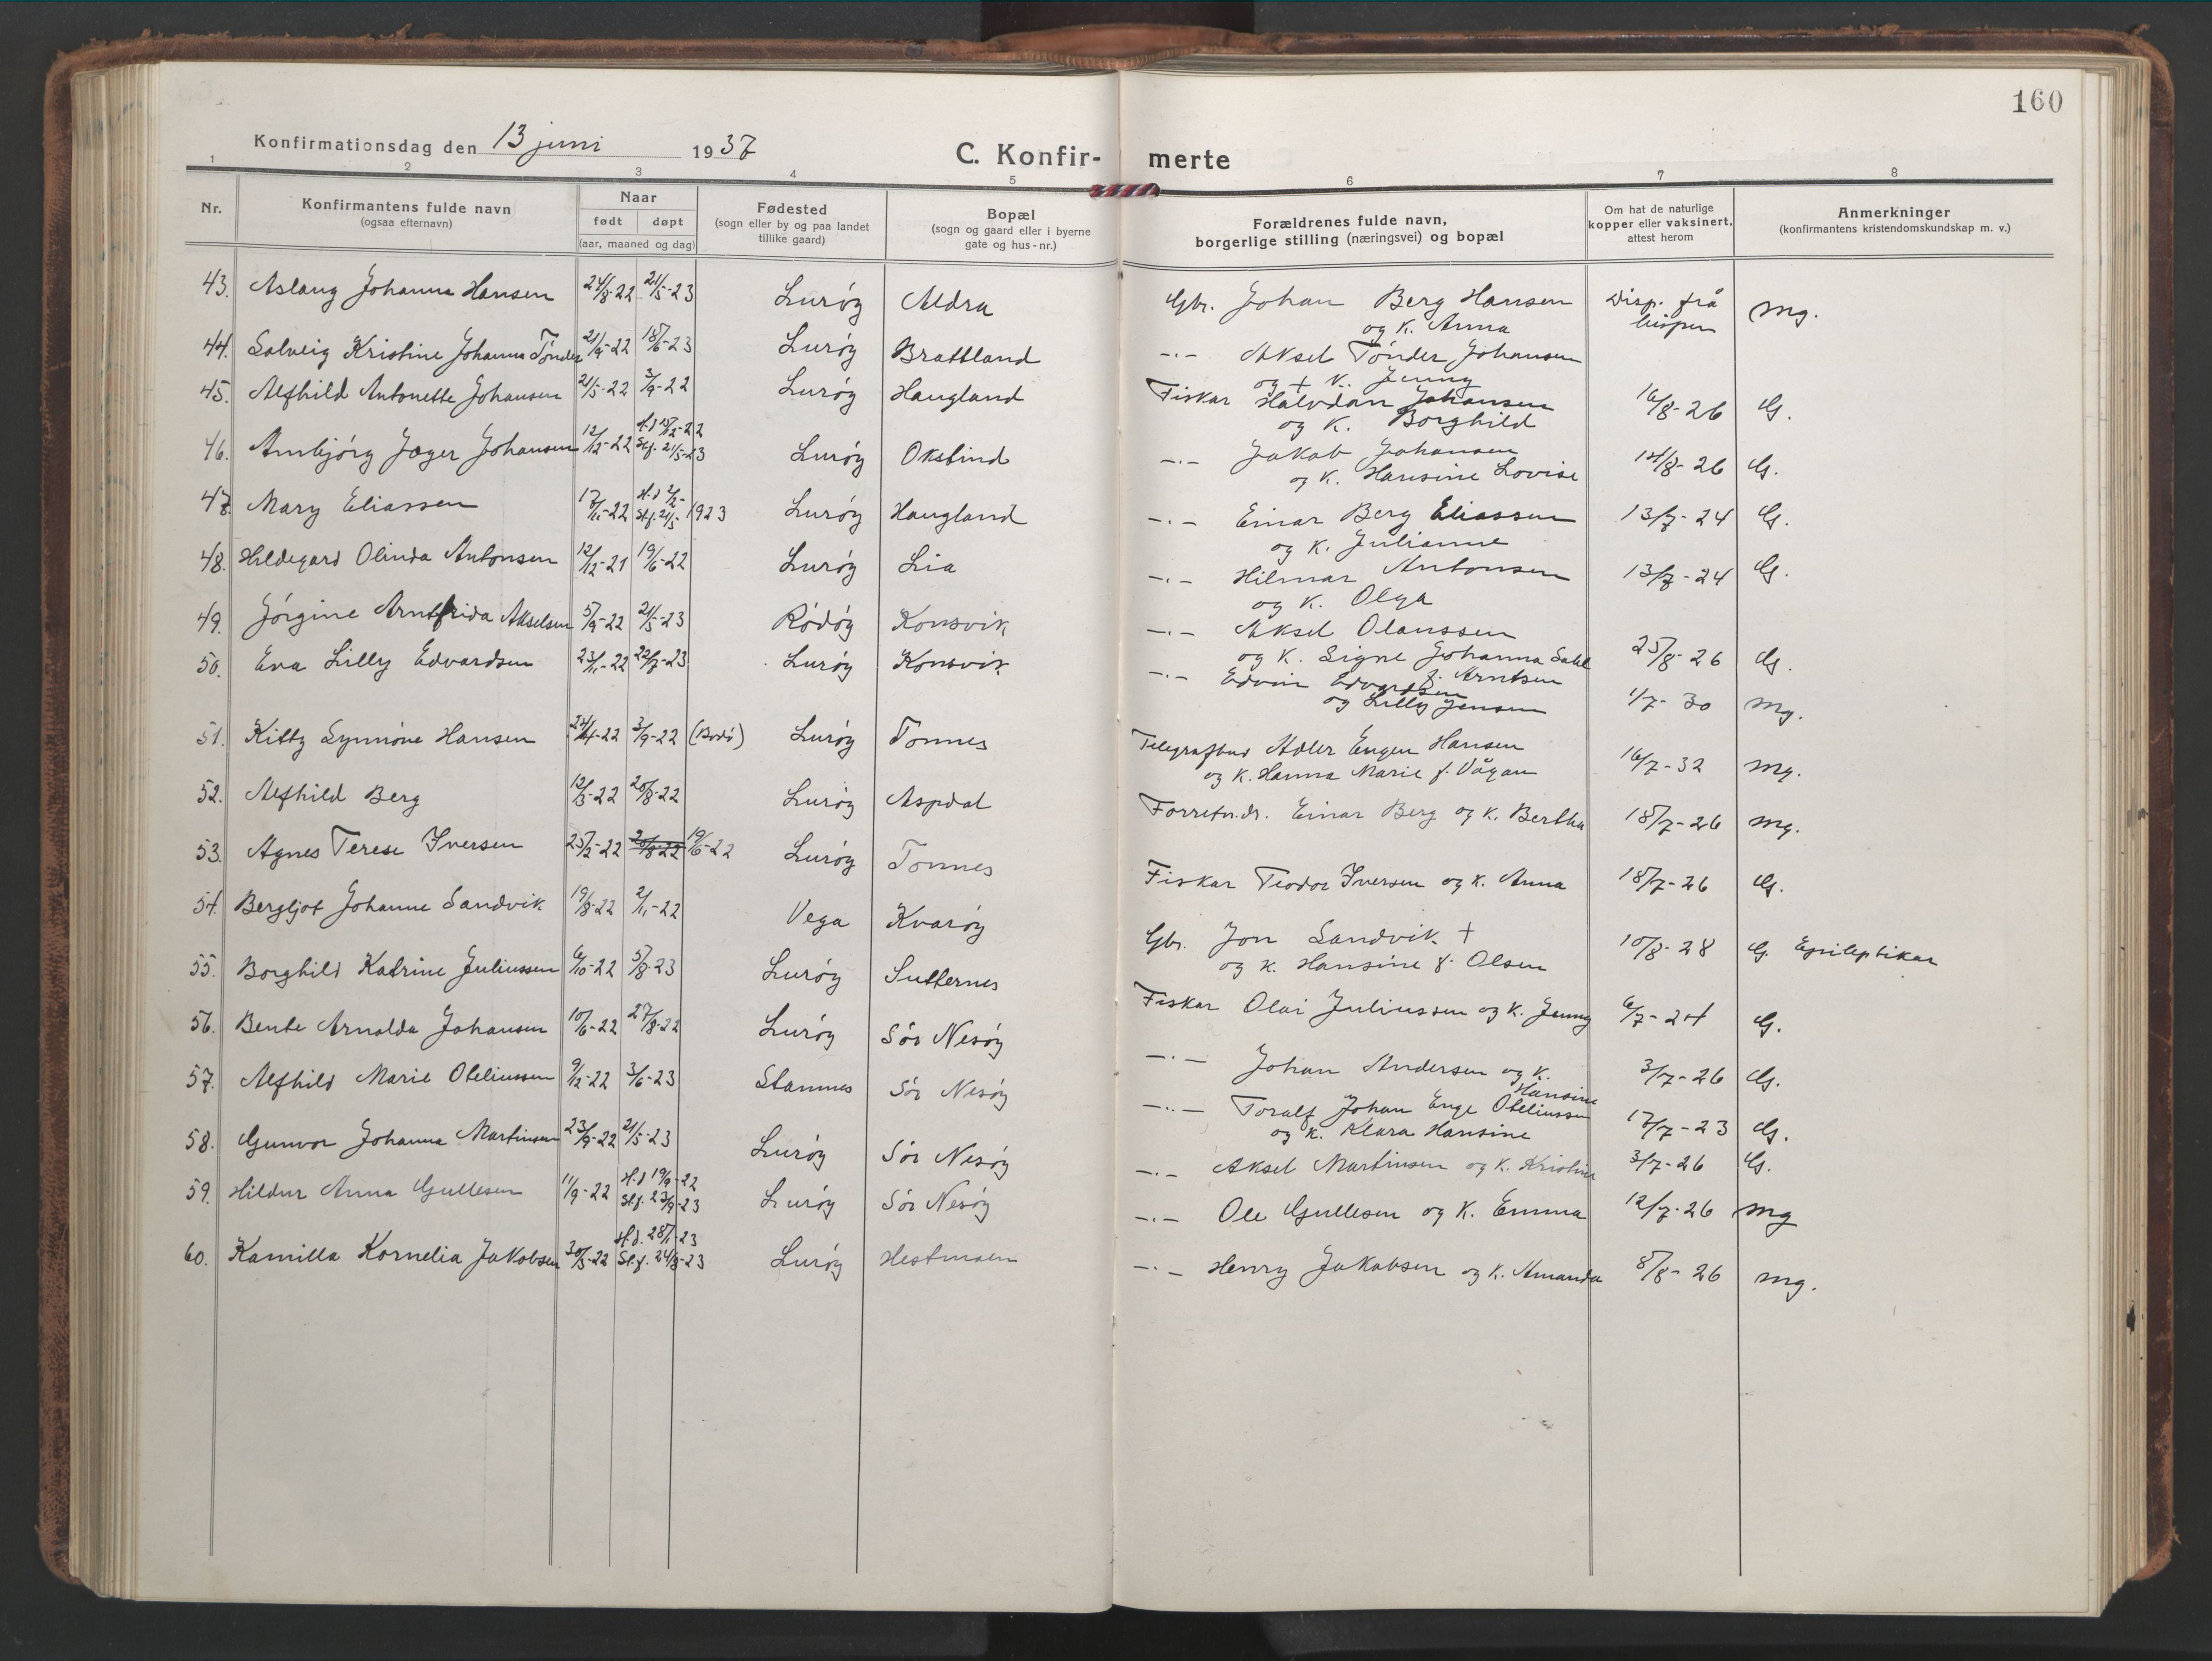 160
Konfirmationsdag den 13 juni 1937
C. Konfir- merte
1 2 3 4 5 6 7 8
Nr.
Konfirmantens fulde navn
(ogsaa efternavn)
Naar
født døpt
(aar, maaned og dag)
Fødested
(sogn eller by og paa landet
tillike gaard)
Bopæl
(sogn og gaard eller i byerne
gate og hus-nr.)
Forældrenes fulde navn,
borgerlige stilling (næringsvei) og bopæl
Om hat de naturlige
kopper eller vaksinert,
attest herom
Anmerkninger
(konfirmantens kristendomskundskap m. v.)
43. Aslaug Johanne Hansen 24/8-22 21/5-23 Lurøy Aldra Gbr. Johan Berg Hansen Disp. frå mg.
og K. Anna bispen
44. Solveig Kristine Johanne Tønder 21/9-22 18/6-23 Lurøy Brattland -.- Aksel Tønder Johansen
og + K. Jenny
45. Alfhild Antonette Johansen 21/5-22 3/9-22 Lurøy Haugland Fiskar Halvdan Johansen 16/8-26 G.
og K. Borghild
46. Annbjørg Jæger Johansen 12/12-22 H.d 18/12-22 Lurøy Okstind -.- Jakob Johansen 14/8-26 G.
St.f. 21/5-23 og K. Hansine Lovise
47. Mary Eliassen 17/11-22 H.d 2/2- Lurøy Haugland -.- Einar Berg Eliassen 13/7-24 G.
St.f. 21/5- 1923 og K. Julianne
48. Hildegard Olinda Antonsen 12/12-21 19/6-22 Lurøy Lia -.- Hilmar Antonsen 13/7-24 G.
og K. Olga
49. Jørgine Arntfrida Akselsen 5/9-22 21/5-23 Rødøy Konsvik -.- Aksel Olaussen 25/8-26 G.
og K. Signe Johanna
f. Arntsen
50. Eva Lilly Edvardsen 23/11-22 22/7-23 Lurøy Konsvik -.- Edvin Edvardsen 1/7-30 mg.
og Lilly Jensen
51. Kitty Synnøve Hansen 24/4-22 3/9-22 (Bodø) Lurøy Tonnes Telegrafbud Adler Eugen Hansen 16/7-32 mg.
og K. Hanna Marie f. Vågan
52. Alfhild Berg 12/3-22 20/8-22 Lurøy Aspdal Forretn.dr. Einar Berg og K. Bertha 18/7-26 mg.
53. Agnes Terese Iversen 25/2-22 20/8-22 19/6-22 Lurøy Tonnes Fiskar Teodor Iversen og K. Anna 18/7-26 G.
54. Bergljot Johanne Sandvik 19/8-22 2/11-22 Vega Kvarøy Gbr. Jon Sandvik + 10/8-28 G. Epileptikar
og K. Hansine f. Olsen
55. Borghild Katrine Juliussen 6/10-22 5/8-23 Lurøy Sutternes Fiskar Olai Juliussen og K. Jenny 6/7-24 G.
56. Bente Arnalda Johansen 10/6-22 27/8-22 Lurøy Sør Nesøy -.- Johan Andersen og K. 3/7-26 G.
Hansine
57. Alfhild Marie Oteliussen 9/12-22 3/6-23 Stamnes Sør Nesøy -.- Toralf Johan Enge Oteliussen 17/7-23 G.
og K. Klara Hansine
58. Gunvor Johanna Martinsen 23/9-22 21/5-23 Lurøy Sør Nesøy -.- Aksel Martinsen og K. Kristine 3/7-26 G.
59. Hildur Anna Gullesen 11/9-22 H.d 19/9-22 Lurøy Sør Nesøy -.- Ole Gullesen og K. Emma 12/7-26 mg
St.f. 23/9-23
60. Kamilla Kornelia Jakobsen 30/5-22 H.d. 28/1-23 Lurøy Hestmoen -.- Henry Jakobsen og K. Amanda 8/8-26 mg.
St.f. 24/8-23